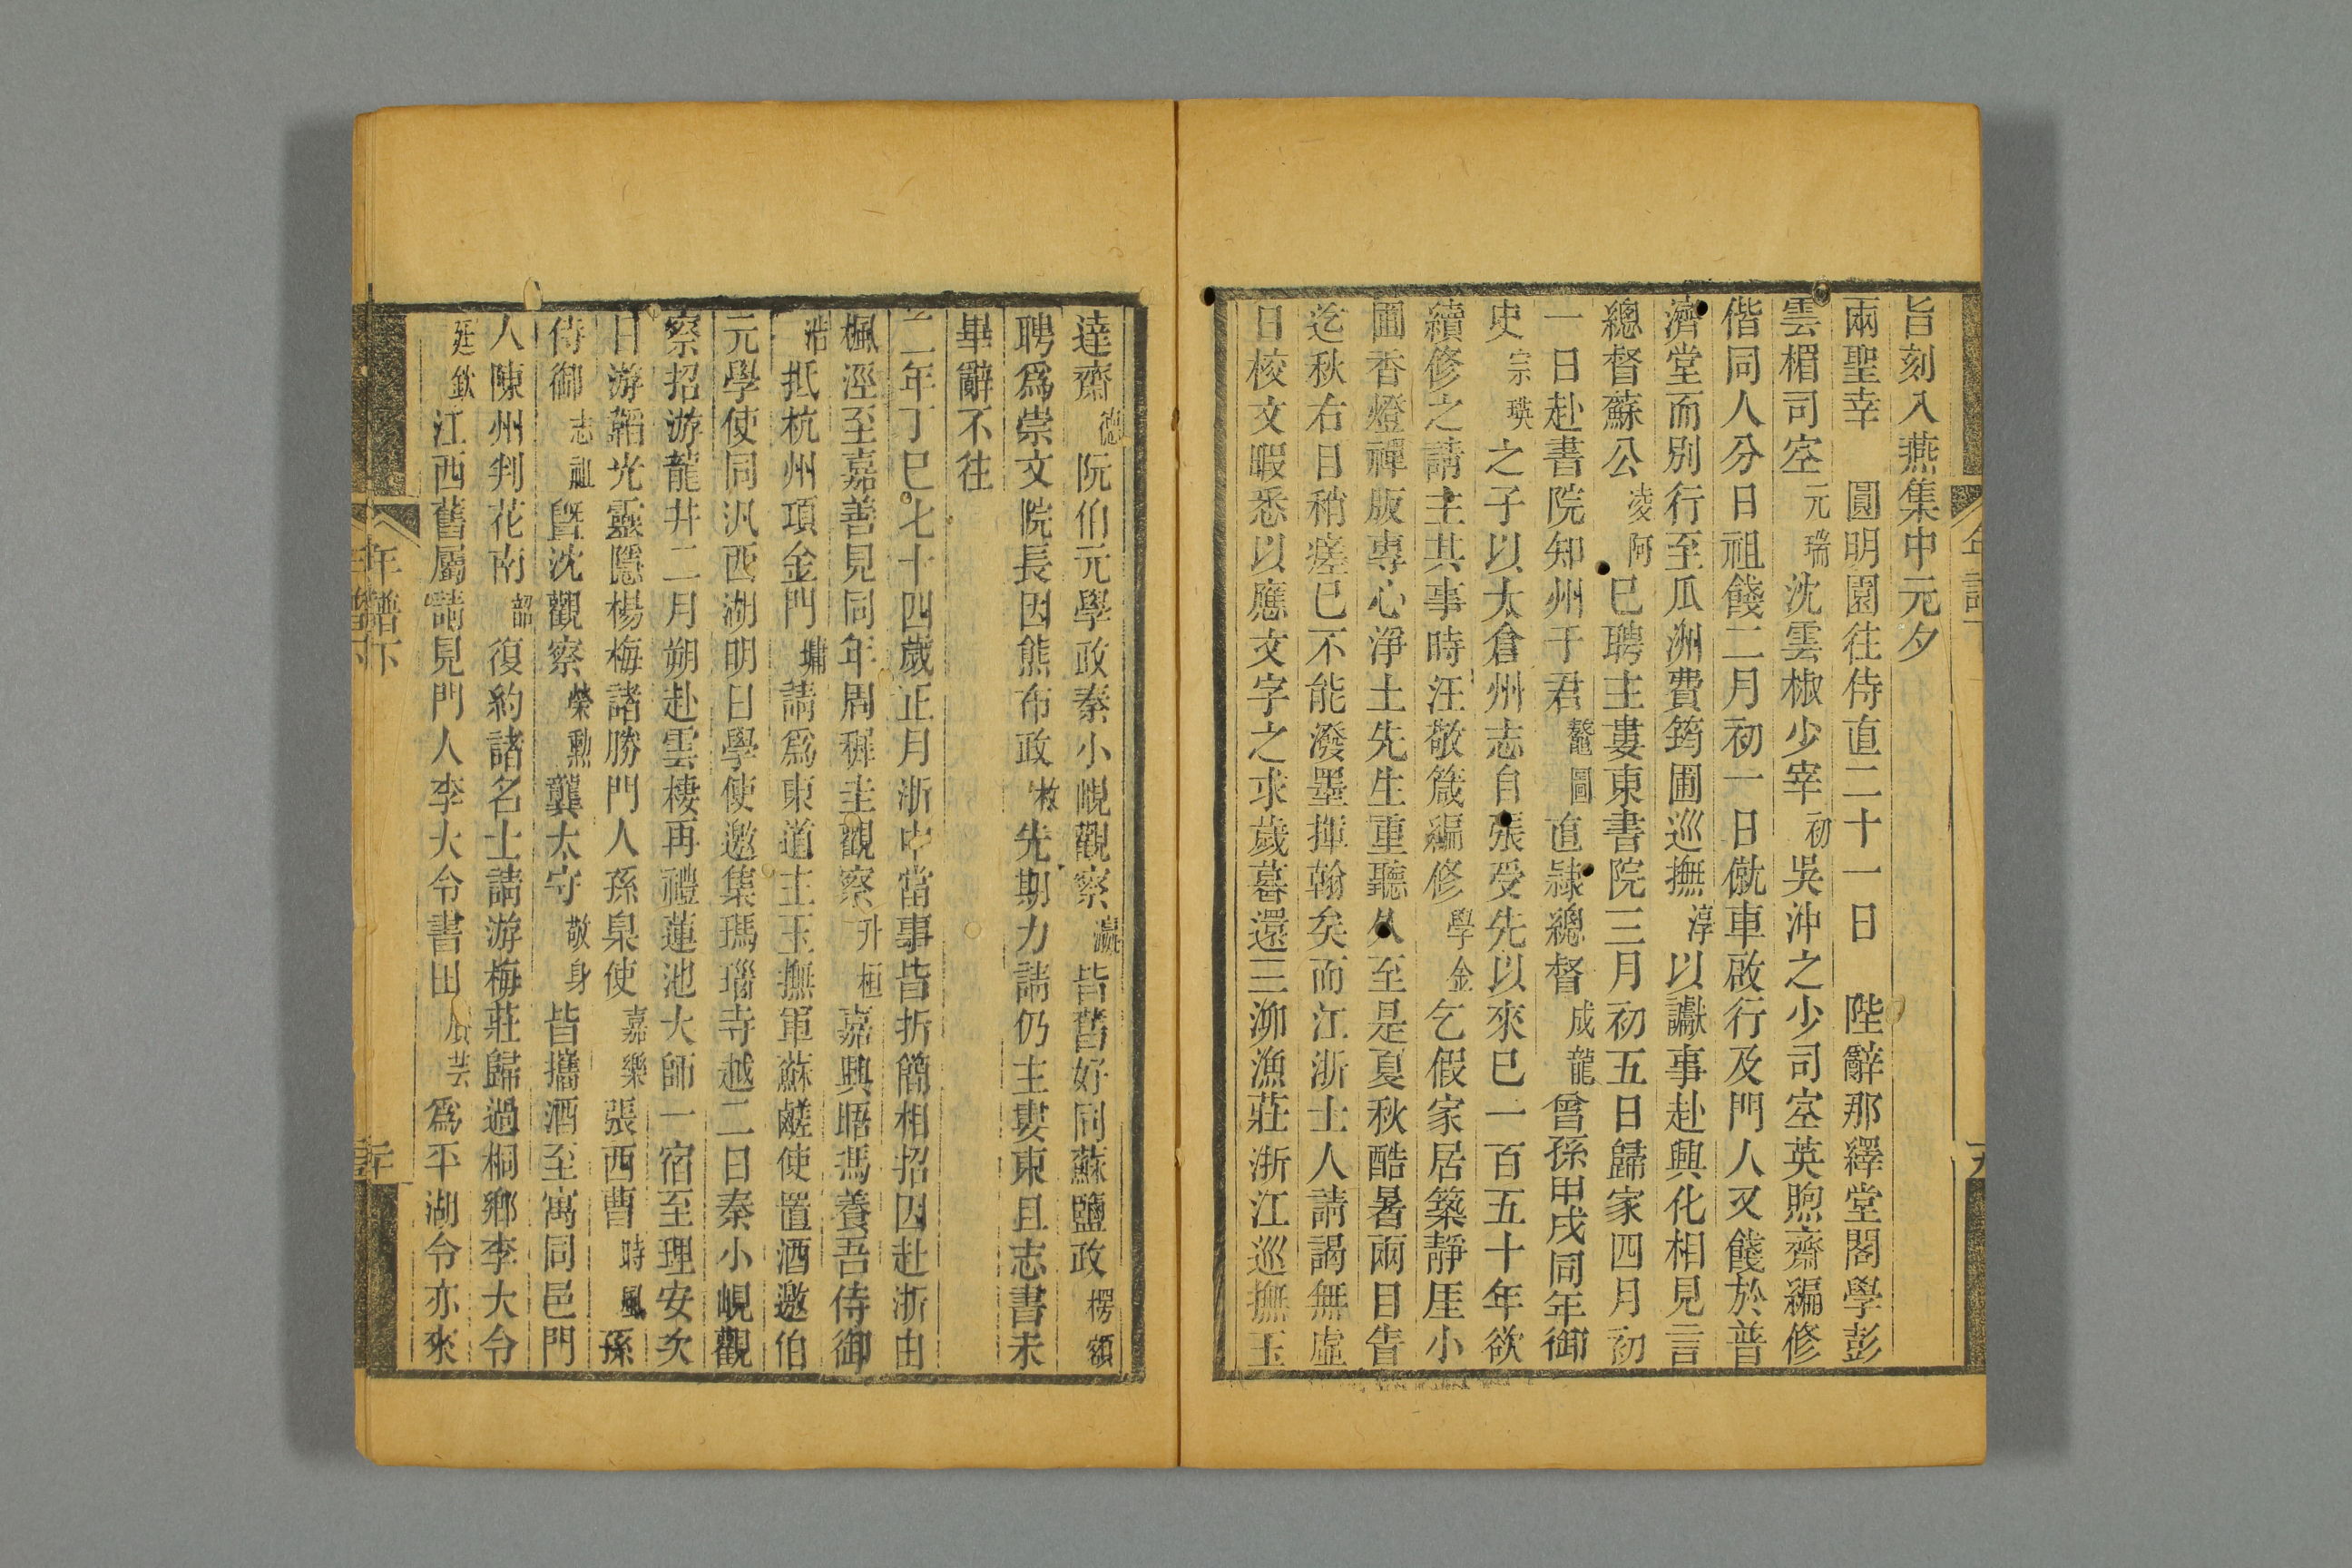 旨刻入燕集中元夕
兩聖幸　圓明園往侍直二十一日　陛辭那繹堂閣學彭
雲楣司空元瑞沈雲椒少宰初吳沖之少司空英煦齋編修
偕同人分日祖餞二月初一日僦車啟行及門人又餞於普
濟堂而別行至瓜洲費筠圃巡撫淳以讞事赴興化相見言
總督蘇公凌阿已聘主婁東書院三月初五日歸家四月初
一日赴書院知州于君鼇圖直隸總督成龍曾孫甲戌同年御
史宗瑛之子以太倉州志自張受先以來已一百五十年欲
續修之請主其事時汪敬箴編修學金乞假家居築靜厓小
圃香燈禪版專心淨土先生重聽久至是夏秋酷暑兩目眚
迄秋右目稍瘥已不能潑墨揮翰矣而江浙士人請謁無虛
日校文暇悉以應文字之求歲暮還三泖漁莊浙江巡撫玉
達齋德阮伯元學政秦小峴觀察瀛皆舊好同蘇鹽政楞額
聘爲崇文院長因熊布政枚先期力請仍主婁東且志書未
畢辭不往
二年丁巳七十四歲正月浙中當事皆折簡相招因赴浙由
楓涇至嘉善見同年周穉圭觀察升桓嘉興晤馮養吾侍御
浩抵杭州項金門墉請爲東道主玉撫軍蘇鹺使置酒邀伯
元學使同汎西湖明日學使邀集瑪瑙寺越二日秦小峴觀
察招游龍井二月朔赴雲棲再禮蓮池大師一宿至理安次
日游韜光靈隱楊梅諸勝門人孫臬使嘉樂張西曹時風孫
侍御志祖曁沈觀察榮勲龔太守敬身皆攜酒至寓同邑門
人陳州判花南韶復約諸名士請游梅莊歸過桐鄉李大令
廷欽江西舊屬請見門人李大令書田賡芸爲平湖令亦來
年譜下